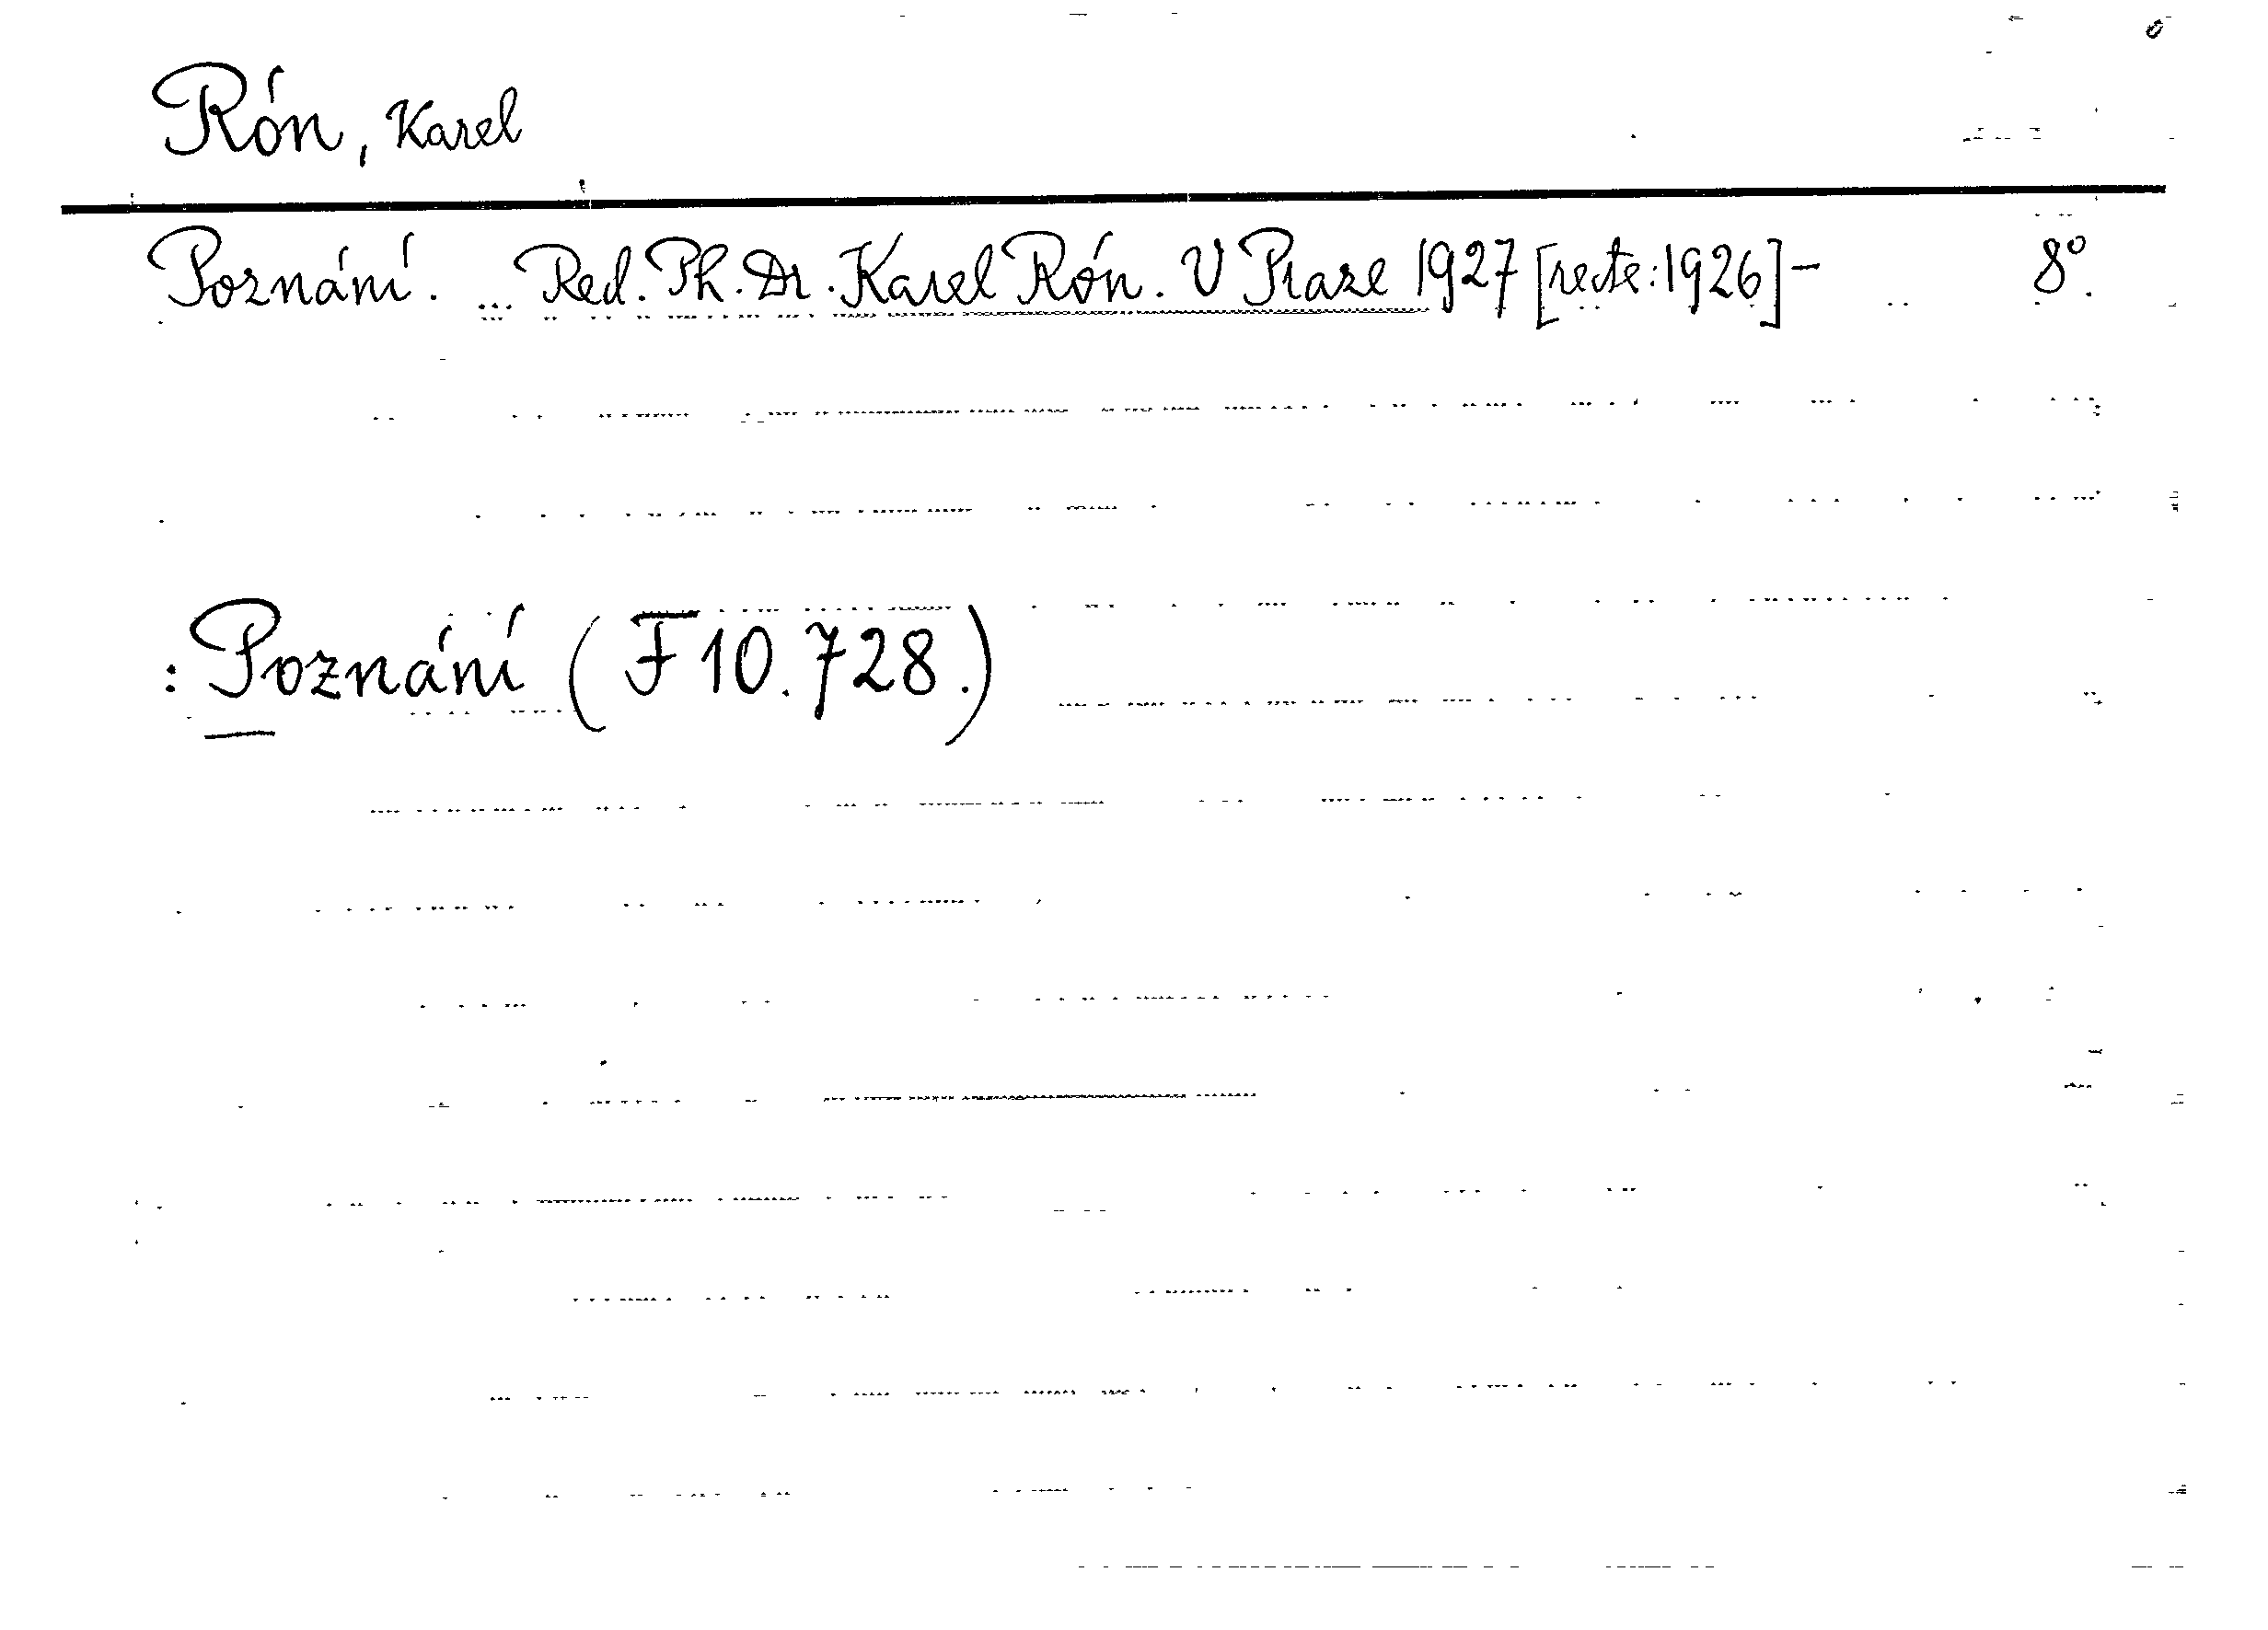 Rón, Karel
Poznání. ... Red. Ph. Dr. Karel Rón. V Praze 1927 [recte: 1926] - 8°.
: Poznání (F 10.728.)